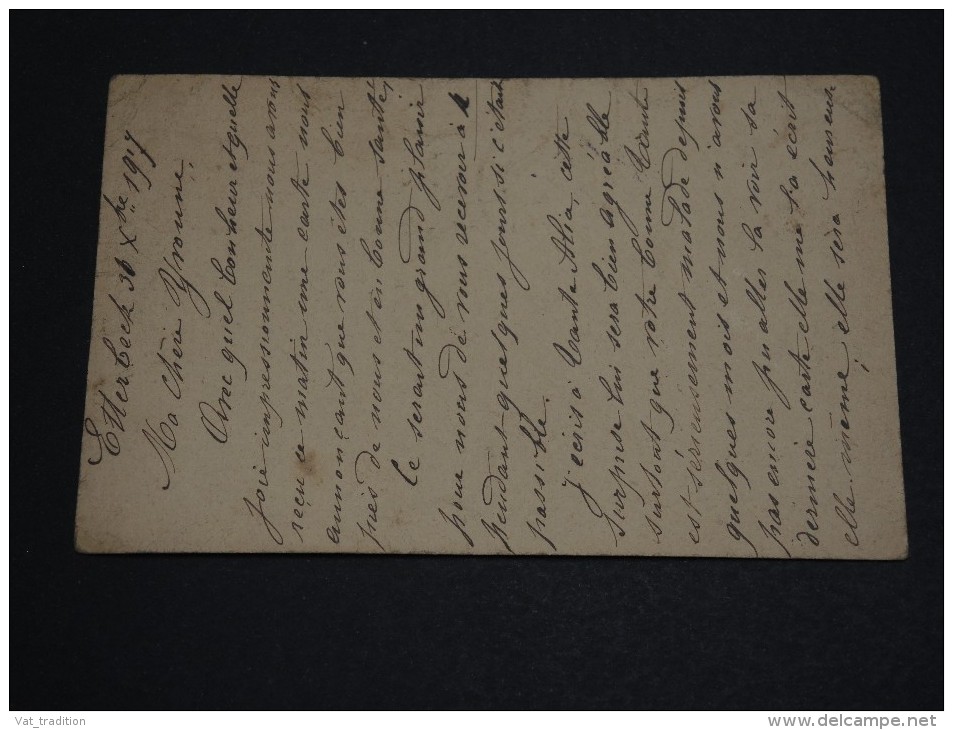 Etterbeek 30 Xbre 1917
Ma chère Yvonne,
Avec quel bonheur et quelle
joie impressionnante nous avons
reçu ce matin une carte nous
annonçant que vous êtes bien
près de nous et en bonne santé,
ce serait un grand plaisir
pour nous de vous recevoir à
pendant quelques jours si c'était
possible.
J'écris à Tante Alia, cette
surprise lui sera bien agréable
surtout que votre bonne Tante
est sérieusement malade depuis
quelques mois et nous n'avons
pas encore pu aller la voir sa
dernière carte elle me l'a écrit
elle-même, elle sera heureuse
Vat_tradition
www.delcampe.net